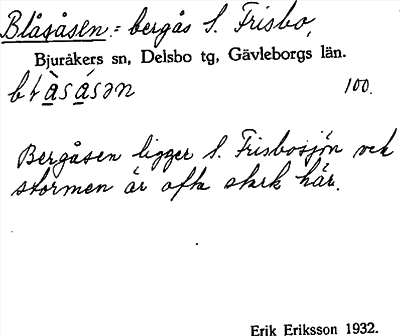 Blåsåsen.= bergås S. Frisbo,
Bjuråkers sn, Delsbo tg, Gävleborgs län.
blås̀åsən 100.
Bergåsen ligger S. Frisbosjön och
stormen är ofta stark här.
Erik Eriksson 1932.